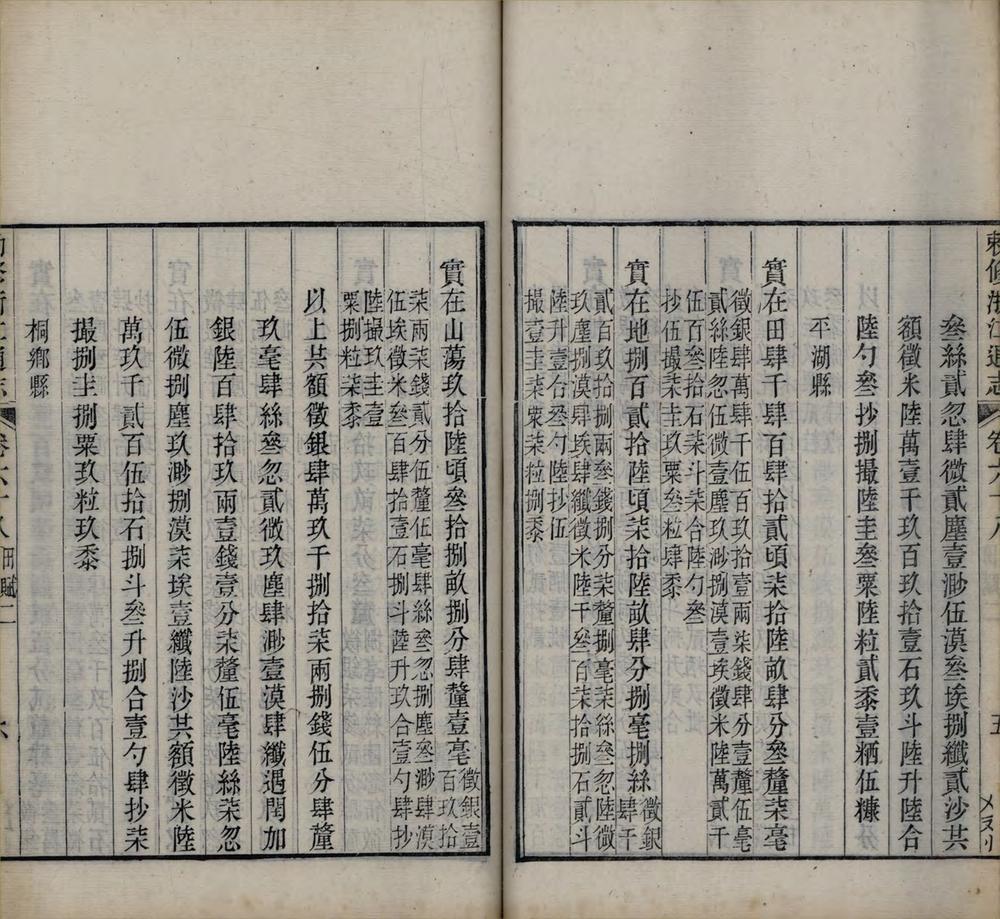 叄絲貳忽肆微貳塵壹渺伍漠叄埃捌纖貳沙共
額徵米陸萬壹千玖百玖拾壹石玖斗陸升陸合
陸勺叄抄捌撮陸圭叄粟陸粒貳黍壹粞伍糠
平湖縣
實在田肆千肆百肆拾貳頃柒拾陸畝肆分叄釐柒毫
徵銀肆萬肆千伍百玖拾壹兩柒錢肆分壹釐伍毫
貳絲陸忽伍微壹塵玖渺捌漠壹埃徵米陸萬貳千
伍百叄拾石柒斗柒合陸勺叄
抄伍撮柒圭玖粟叄粒肆黍
實在地捌百貳拾陸頃柒拾陸畝肆分捌毫捌絲
徵銀
肆千
貳百玖拾捌兩叄錢捌分柒釐捌毫柒絲叄忽陸微
玖塵捌漠肆埃肆纖徵米陸千叄百柒拾捌石貳斗
陸升壹合叄勺陸抄伍
撮壹圭柒粟柒粒捌黍
實在山蕩玖拾陸頃叄拾捌畝捌分肆釐壹毫
徵銀壹
百玖拾
柒兩柒錢貳分伍釐伍毫肆絲叄忽捌塵叄渺肆漠
伍埃徵米叄百肆拾壹石捌斗陸升玖合壹勺肆抄
陸撮玖圭壹
粟捌粒柒黍
以上共額徵銀肆萬玖千捌拾柒兩捌錢伍分肆釐
玖毫肆絲叄忽貳微玖塵肆渺壹漠肆纖遇閏加
銀陸百肆拾玖兩壹錢壹分柒釐伍毫陸絲柒忽
伍微捌塵玖渺捌漠柒埃壹纖陸沙共額徵米陸
萬玖千貳百伍拾石捌斗叄升捌合壹勺肆抄柒
撮捌圭捌粟玖粒玖黍
桐鄉縣